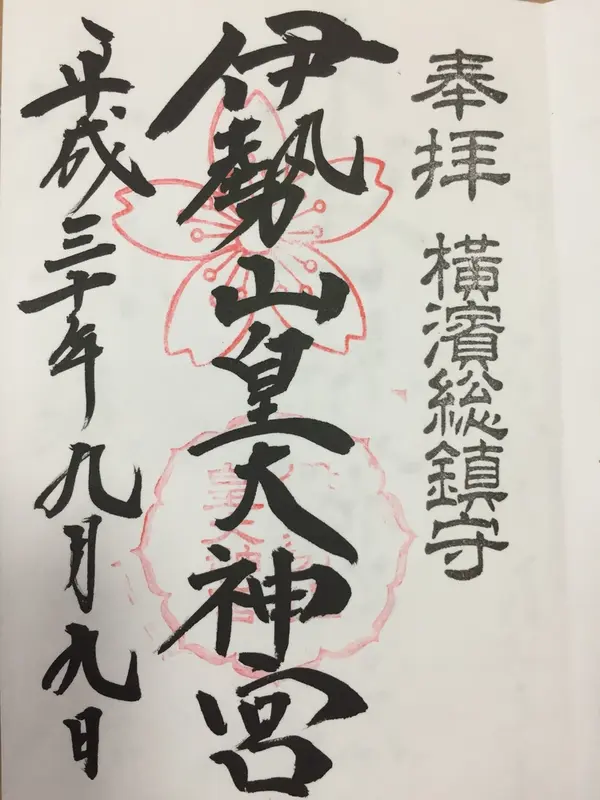 奉拝 横濱総鎮守
伊勢山皇大神宮
平成三十年九月九日